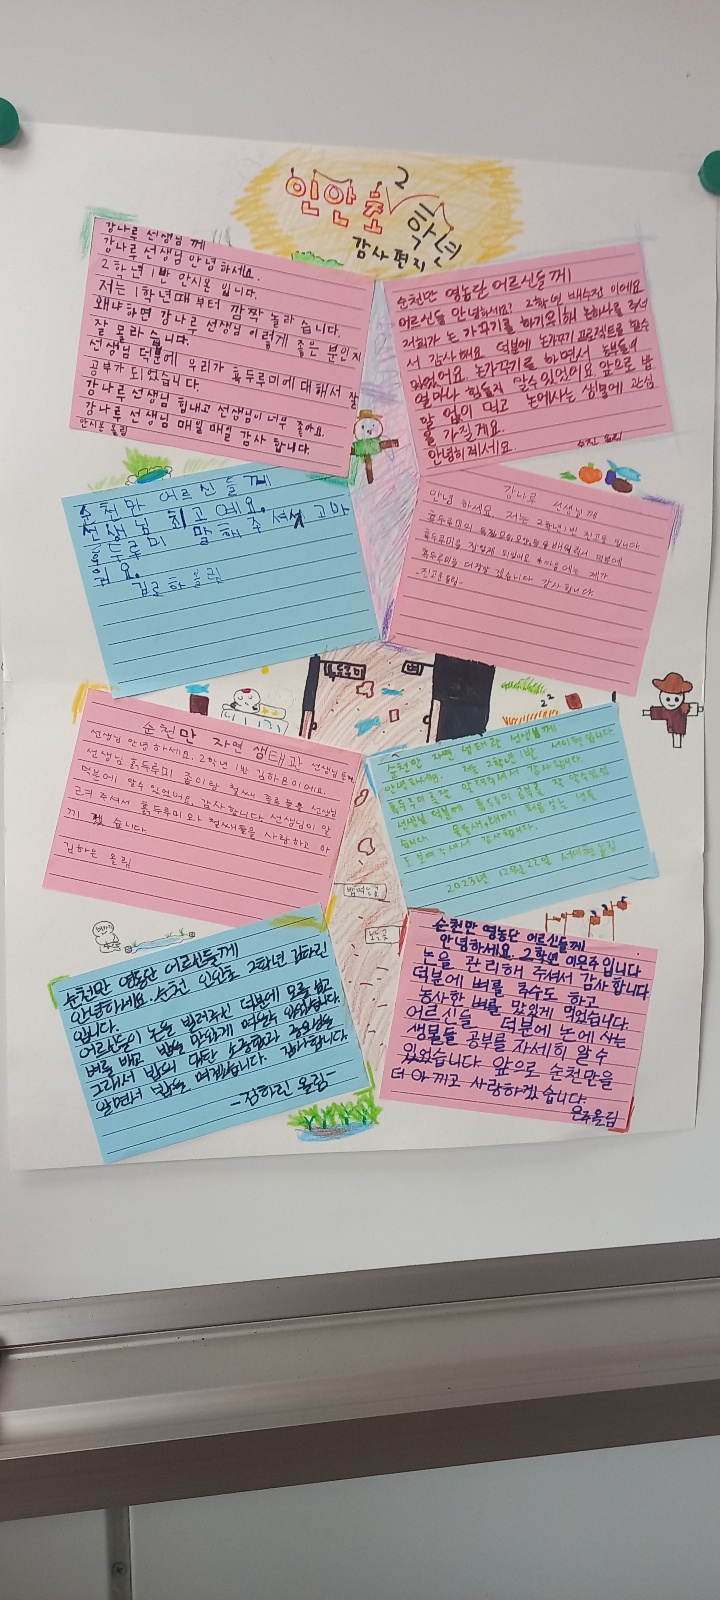 인안초 2학년
감사편지
강나루 선생님께
강나루 선생님 안녕하세요.
2학년 1반 안시온 입니다.
저는 1학년때 부터 깜짝 놀라 습니다.
왜냐하면 강나루 선생님 이렇게 좋은 분인지
잘 몰라 습니다.
선생님 덕분에 우리가 흑두루미에 대해서 잘
공부가 되었습니다.
강나루 선생님 힘내고 선생님이 너무 좋아요.
강나루 선생님 매일 매일 감사 합니다.
안시온 올림
순천만 영농단 어르신들께
어르신들 안녕하세요? 2학년 배수진 이에요
저희가 논 가꾸기를 하기위해 논하사를 주셔
서 감사해요 덕분에 논가꾸기 프로젝트를 할수
있었어요. 논가꾸기를 하면서 농부들이
얼마나 힘들지 알수있었어요. 앞으로 밥
말 없이 먹고 논에사는 생물에 관심
을 가질게요.
안녕히계세요
수진 올림
순천만 어르신들께
선생님 최고예요.
흑두루미 말해 주셔서 고마
워요.
김로하 올림
강나루 선생님께
안녕 하세요. 저는 2학년 1반 진고운 입니다.
흑두루미의 덕분에
흑두루미을 잘알게 되었어요 다음에는 제가
흑두루미들 더 겠습니다 감사합니다.
-진고운올림-
흑두루미
벼
순천만 자연 생태관 선생님들께
선생님 안녕하세요. 2학년 1반 김하은이에요.
선생님 흑두루미 종이랑 철새 종류들을 선생님
덕분에 알수 있었어요. 감사합니다 선생님이 알
려 주셔서 흑두루미와 철새들을 사랑하고 아
끼 겠 습니다.
김하은 올림
순천만 자연 생태관 선생님께
안녕하세요. 저는 2학년 1반 서이현 입니다.
흑두루미를 잘 알려주셔서 감사합니다
선생님 덕분에 흑두루미 공부를 잘 할수있었
습니다.
도 보여 주셔서 감사합니다.
2023년 12월 22일 서이현올림
밥먹는곳
노는곳
순천만 영농단 어르신들께
안녕하세요. 순천 인안초 2학년 김하린
입니다.
어르신들이 논을 빌려주신 덕분에 모를 심고
벼를 베고 밥을 맛있게 먹을수 있었습니다.
그래서 밥의 대한 소중함과 고마움을
알면서 밥을 먹겠습니다. 감사합니다.
-김하린 올림-
순천만 영농단 어르신들께
안녕하세요. 2학년 이은주 입니다
논을 관리해 주셔서 감사합니다
덕분에 벼를 주수도 하고
농사한 벼를 맛있게 먹었습니다.
어르신들 덕분에 논에 사는
생물들 공부를 자세히 알 수
있었습니다. 앞으로 순천만을
더 아끼고 사랑하겠습니다.
은주올림